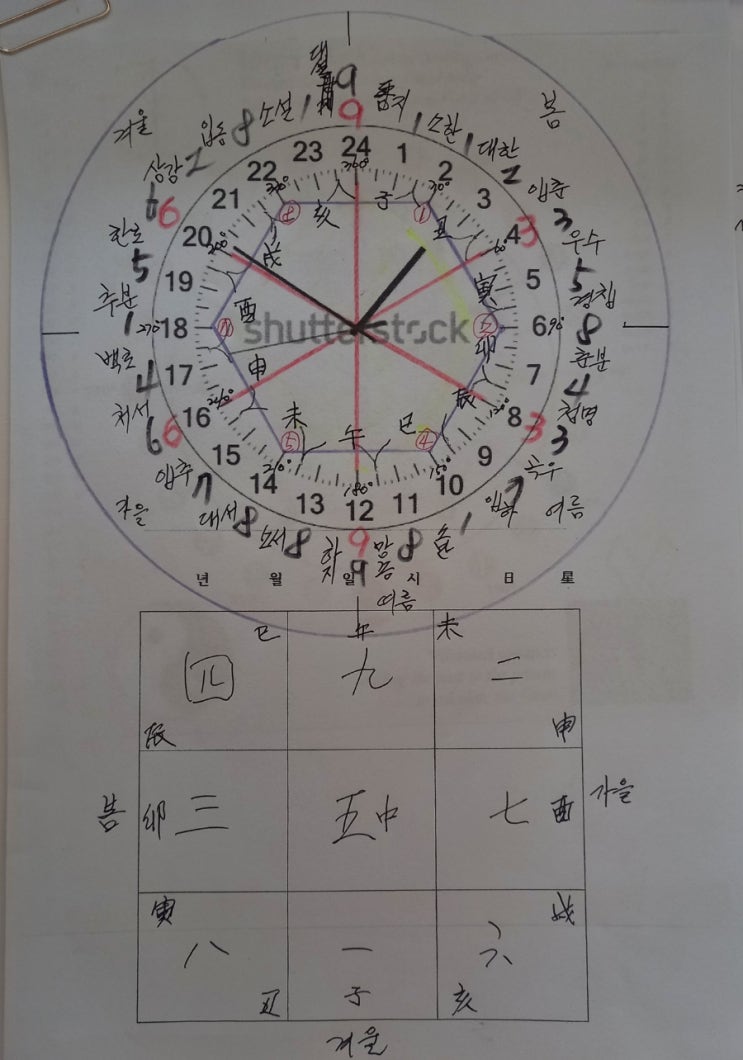 9
9
동지
1
소한
1
대한
2
입춘
3
3
우수
5
경칩
8
춘분
4
청명
3
3
곡우
7
입하
1
8
망종
하지
9
9
소서
8
대서
8
입추
7
처서
6
6
백로
4
추분
1
한로
5
6
6
상강
2
입동
8
소설
1
봄
여름
여름
가을
겨울
24
1
2
3
4
5
6
7
8
9
10
11
12
13
14
15
16
17
18
19
20
21
22
23
360°
30°
60°
90°
150°
180°
210°
240°
270°
300°
330°
子
丑
寅
卯
辰
巳
午
未
申
酉
戌
亥
①
④
⑤
shutterstock
년 월 일 시 日 星
巳 午 未
四 九 二
辰 申
봄 卯 三 五中 七 酉 가을
寅 戌
八 一 六
丑 子 亥
겨울